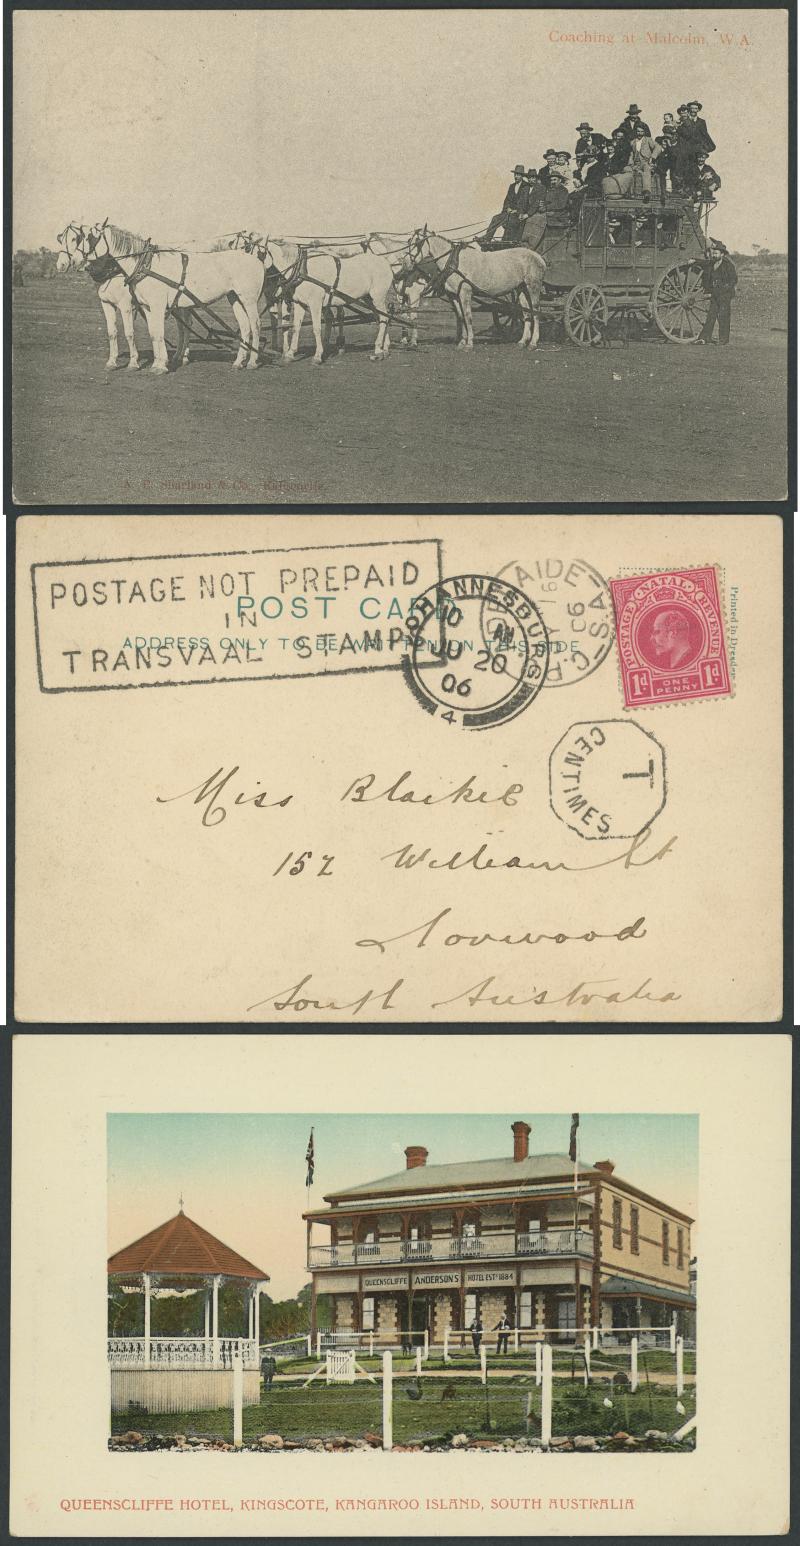 Coaching at Malcolm, W.A.
A. E. Sharland & Co., Kalgoorlie.
POSTAGE NOT PREPAID
IN
TRANSVAAL STAMPS
POST CARD
ADDRESS ONLY TO BE WRITTEN ON THIS SIDE
JOHANNESBURG
10 AM
20
06
4
AIDE
S.A
16
06
POSTAGE NATAL REVENUE
1d ONE PENNY 1d
Printed in Dresden
T
CENTIMES
Miss Blaikie
157 William St
Norwood
South Australia
QUEENSCLIFFE ANDERSON'S HOTEL EST. 1884
QUEENSCLIFFE HOTEL, KINGSCOTE, KANGAROO ISLAND, SOUTH AUSTRALIA